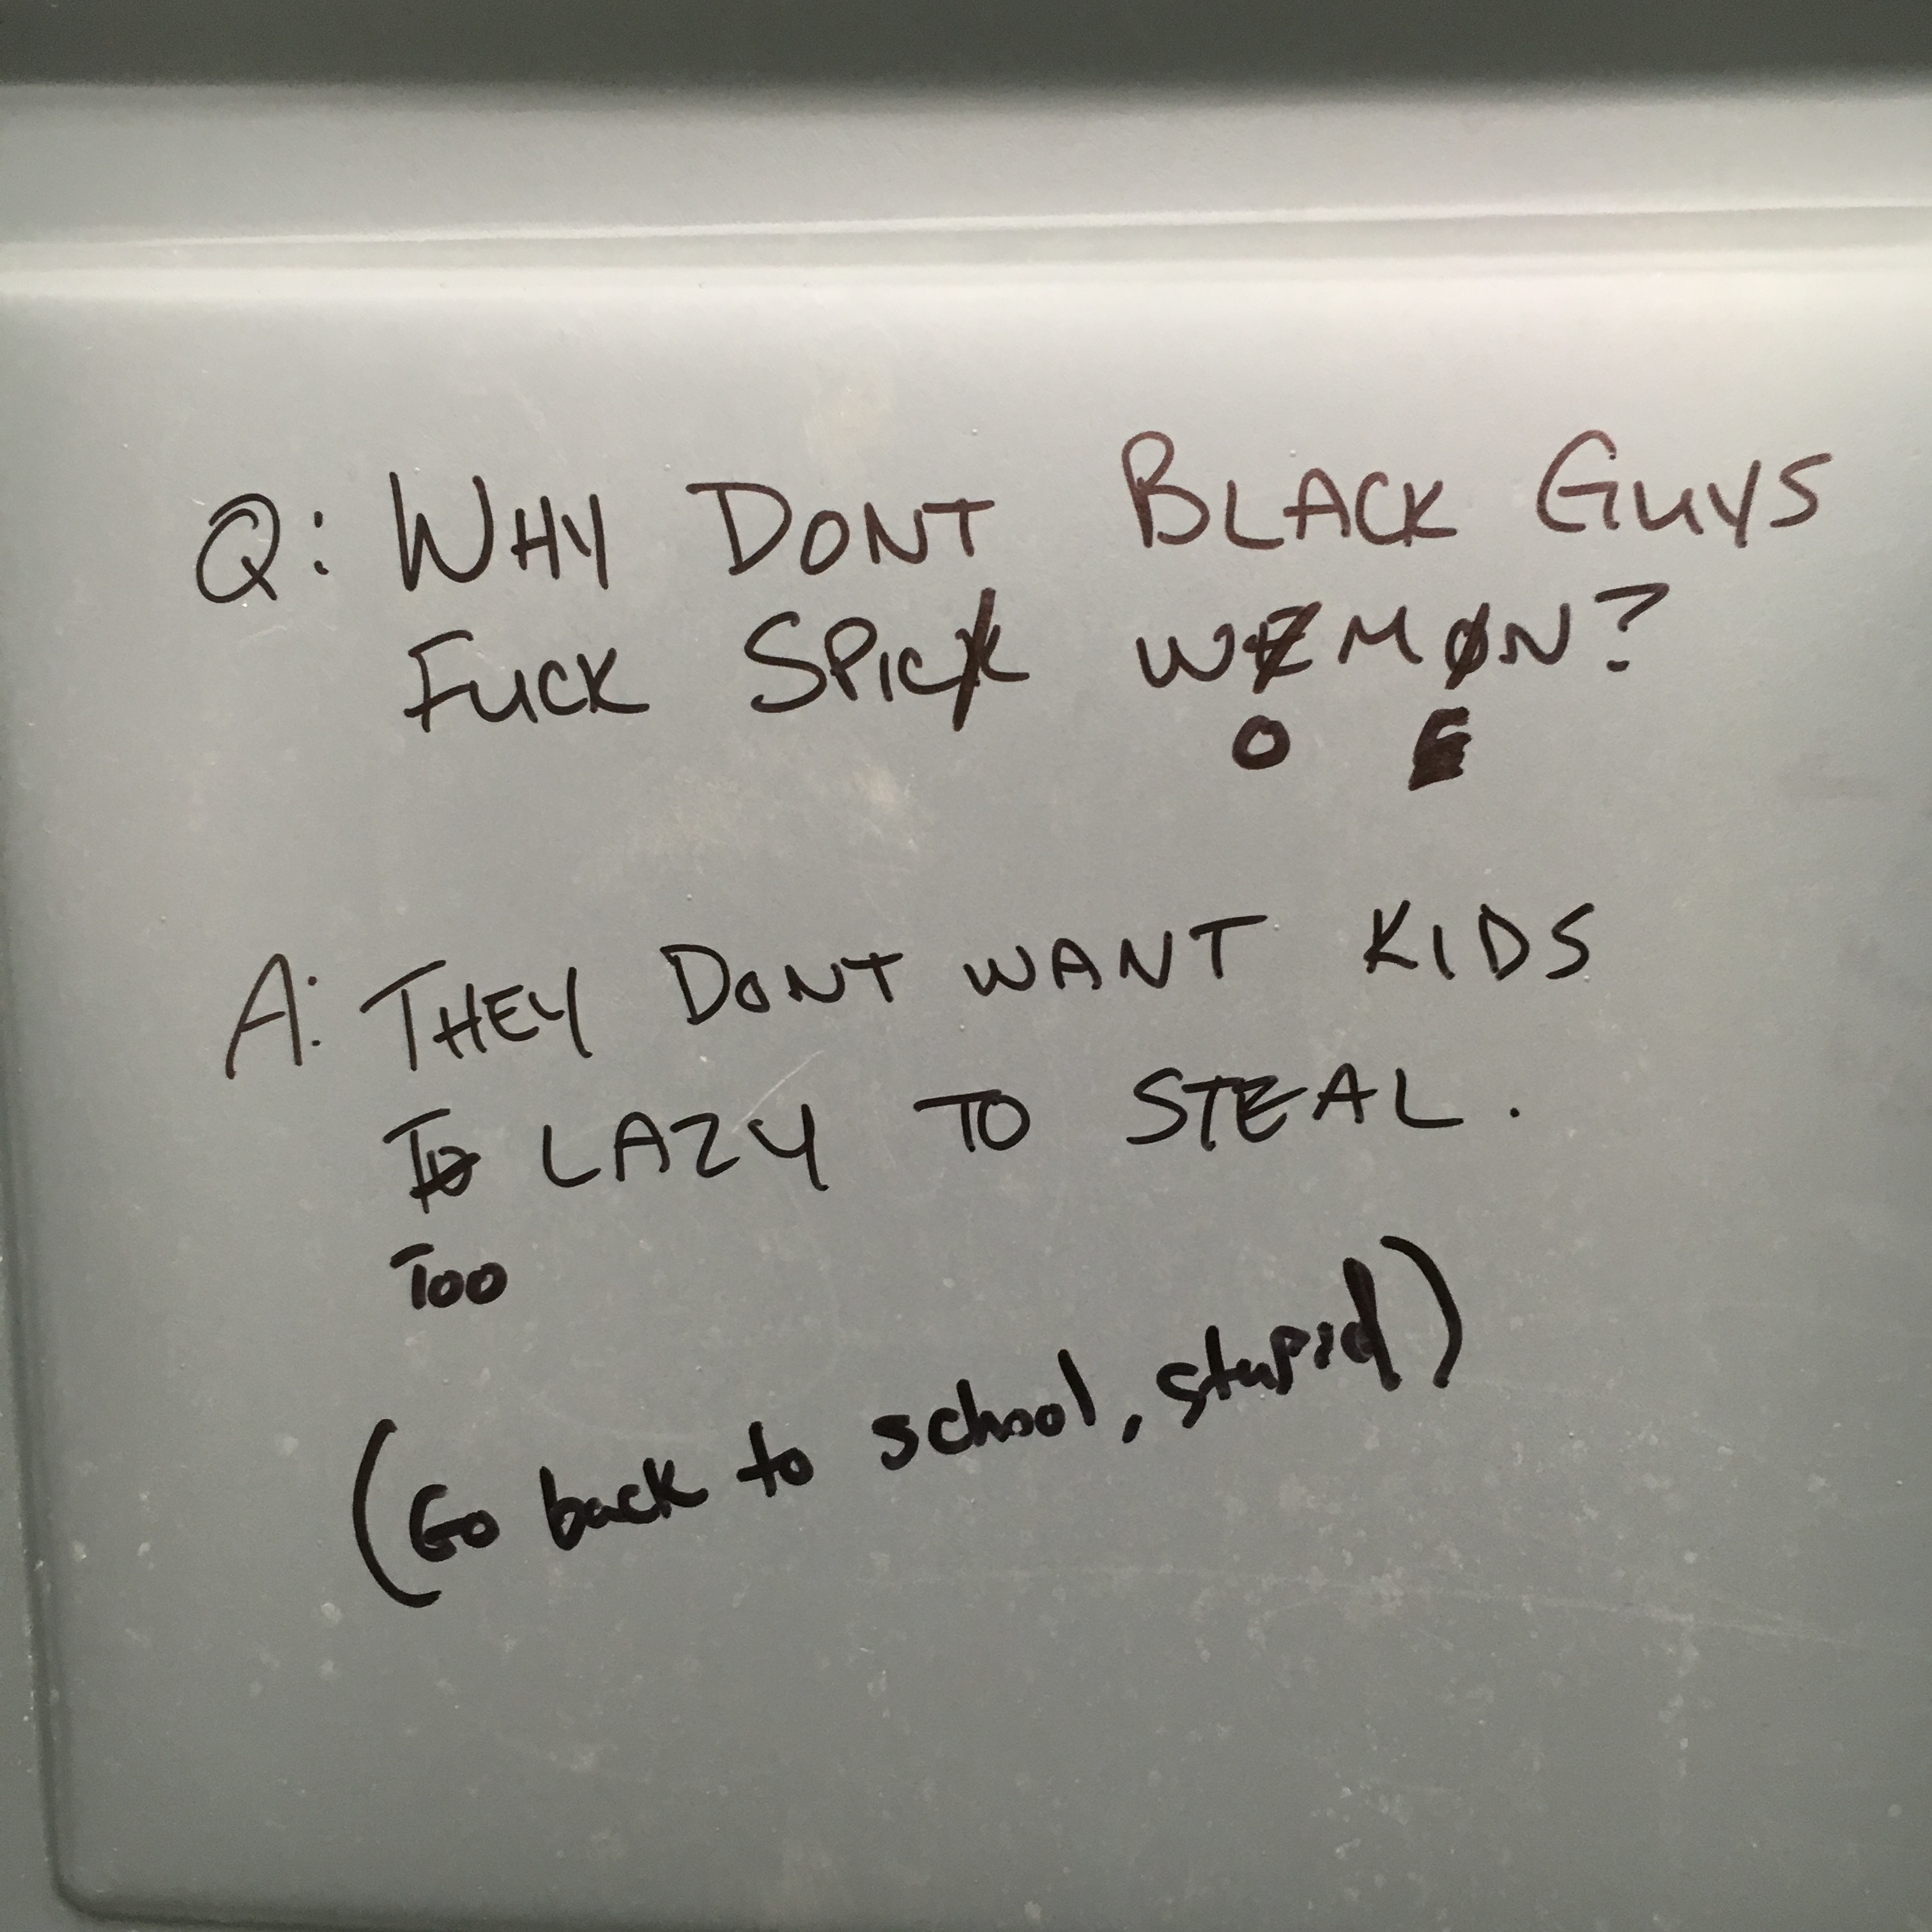 Q: WHY DONT BLACK GUYS
FUCK SPICK WEMON?
O E
A: THEY DONT WANT KIDS
TO LAZY TO STEAL.
TOO
(Go back to school, stupid)